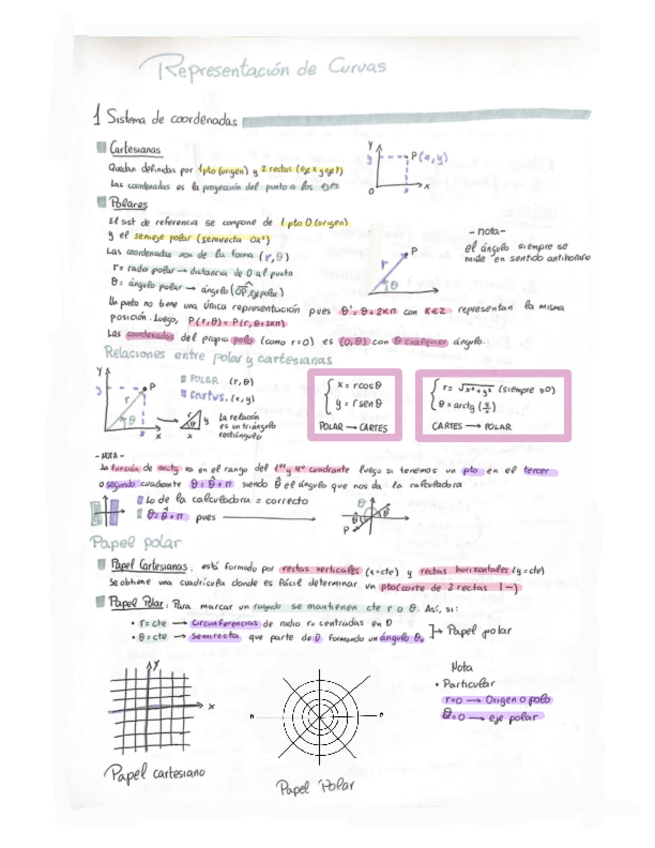 Representación de Curvas
1 Sistema de coordenadas
Cartesianas
Quedan definidas por 1pto (origen) y 2 rectas (eje x y eje Y)
Las coordenadas es la proyección del punto a los ejes
Y
y
P(x,y)
O
x
x
Polares
El sist de referencia se compone de 1 pto O (origen)
y el semieje polar (semirecta Ox⁺)
Las coordenadas son de la forma (r, θ)
r = radio polar → distancia de O al punto
θ = ángulo polar → ángulo (OP, eje polar)
P
r
θ
- nota -
el ángulo siempre se
mide en sentido antihorario
Un punto no tiene una única representación pues θ y θ+2kπ con k∈Z representan la misma
posición. Luego, P(r,θ) = P(r, θ+2kπ)
Las coordenadas del propio polo (como r=0) es (0,θ) con θ cualquier ángulo.
Relaciones entre polar y cartesianas
Y
y
P
r
θ
x
x
POLAR (r, θ)
Cartes. (x, y)
r
y
θ
x
La relación
es un triángulo
rectángulo
x = rcosθ
y = r senθ
POLAR → CARTES
r = √x²+y² (siempre >0)
θ = arctg (y/x)
CARTES → POLAR
- NOTA -
La función de arctg va en el rango del 1er y 4º cuadrante luego si tenemos un pto en el tercer
o segundo cuadrante θ = θ̂ + π siendo θ̂ el ángulo que nos da la calculadora
Lo de la calculadora = correcto
θ = θ̂ + π pues
θ
θ̂
θ̂
P
Papel polar
Papel Cartesianas: está formado por rectas verticales (x=cte) y rectas horizontales (y=cte)
Se obtiene una cuadrícula donde es fácil determinar un pto (corte de 2 rectas | −)
Papel Polar: Para marcar un se mantienen cte r o θ. Así, si:
• r = cte → circunferencias de radio r₀ centradas en O
• θ = cte → semirecta que parte de O formando un ángulo θ₀
Papel polar
Y
x
Papel cartesiano
Papel Polar
Nota
• Particular
r=0 → Origen o polo
θ=0 → eje polar